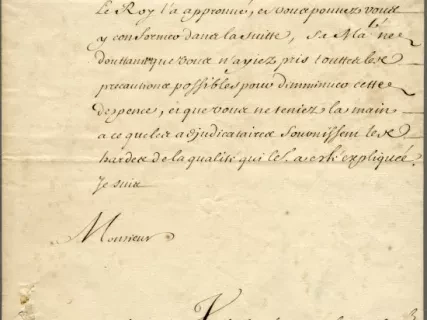 Le Roy l'a approuué, et vous pouvez vous
y conformer dans la suitte, Sa Maté ne
douttant que vous n'ayiez pris touttes les
precautions possibles pour diminuer cette
depence, et que vous ne teniez la main
a ce que les adjudicataires fournissent les
hardes de la qualité qui les a esté expliquée.
Je suis
Monsieur